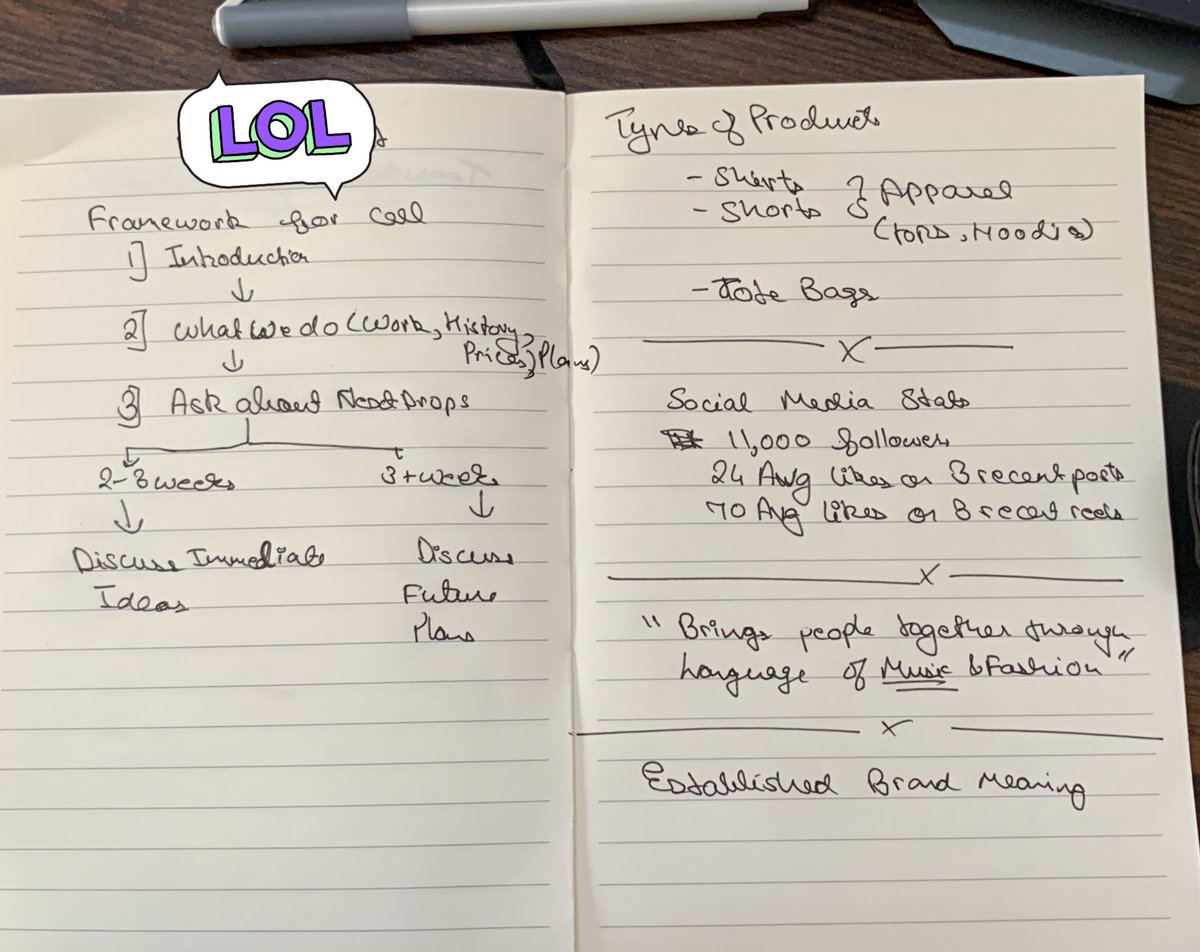 LOL
Framework for Call
1] Introduction
2] What we do (Work, History,
Prices, Plans)
3] Ask about Next Drops
2-3 weeks
3+ weeks
Discuss Immediate
Ideas
Discuss
Future
Plans
Types of Products
- Shirts
- Shorts
} Apparel
(TOPS, Hoodies)
- Tote Bags
x
Social Media Stats
11,000 followers
24 Avg likes on 3 recent posts
70 Avg likes on 3 recent reels
x
"Brings people together through
language of Music & Fashion"
x
Established Brand Meaning